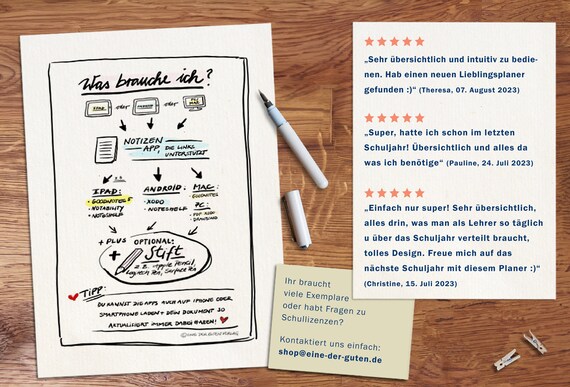 Was brauche ich?
IPAD oder ANDROID oder
NOTIZEN
APP, DIE LINKS
UNTERSTÜTZT
z.B.
IPAD: ANDROID: MAC:
• GOODNOTES • XODO • GOODNOTES
• NOTABILITY • NOTESHELF PC:
• NOTESHELF • PDF XODO
• DRAWBOARD
+ PLUS OPTIONAL:
+ Stift
z.B. Apple Pencil,
Logitech Pen, Surface Pen
TIPP:
DU KANNST DIE APPS AUCH AUF IPHONE ODER
SMARTPHONE LADEN + DEIN DOKUMENT SO
AKTUALISIERT IMMER DABEI HABEN!
© EINE DER GUTEN VERLAG
„Sehr übersichtlich und intuitiv zu bedie-
nen. Hab einen neuen Lieblingsplaner
gefunden :)“ (Theresa, 07. August 2023)
„Super, hatte ich schon im letzten
Schuljahr! Übersichtlich und alles da
was ich benötige“ (Pauline, 24. Juli 2023)
„Einfach nur super! Sehr übersichtlich,
alles drin, was man als Lehrer so täglich
u über das Schuljahr verteilt braucht,
tolles Design. Freue mich auf das
nächste Schuljahr mit diesem Planer :)“
(Christine, 15. Juli 2023)
Ihr braucht
viele Exemplare
oder habt Fragen zu
Schullizenzen?
Kontaktiert uns einfach:
shop@eine-der-guten.de